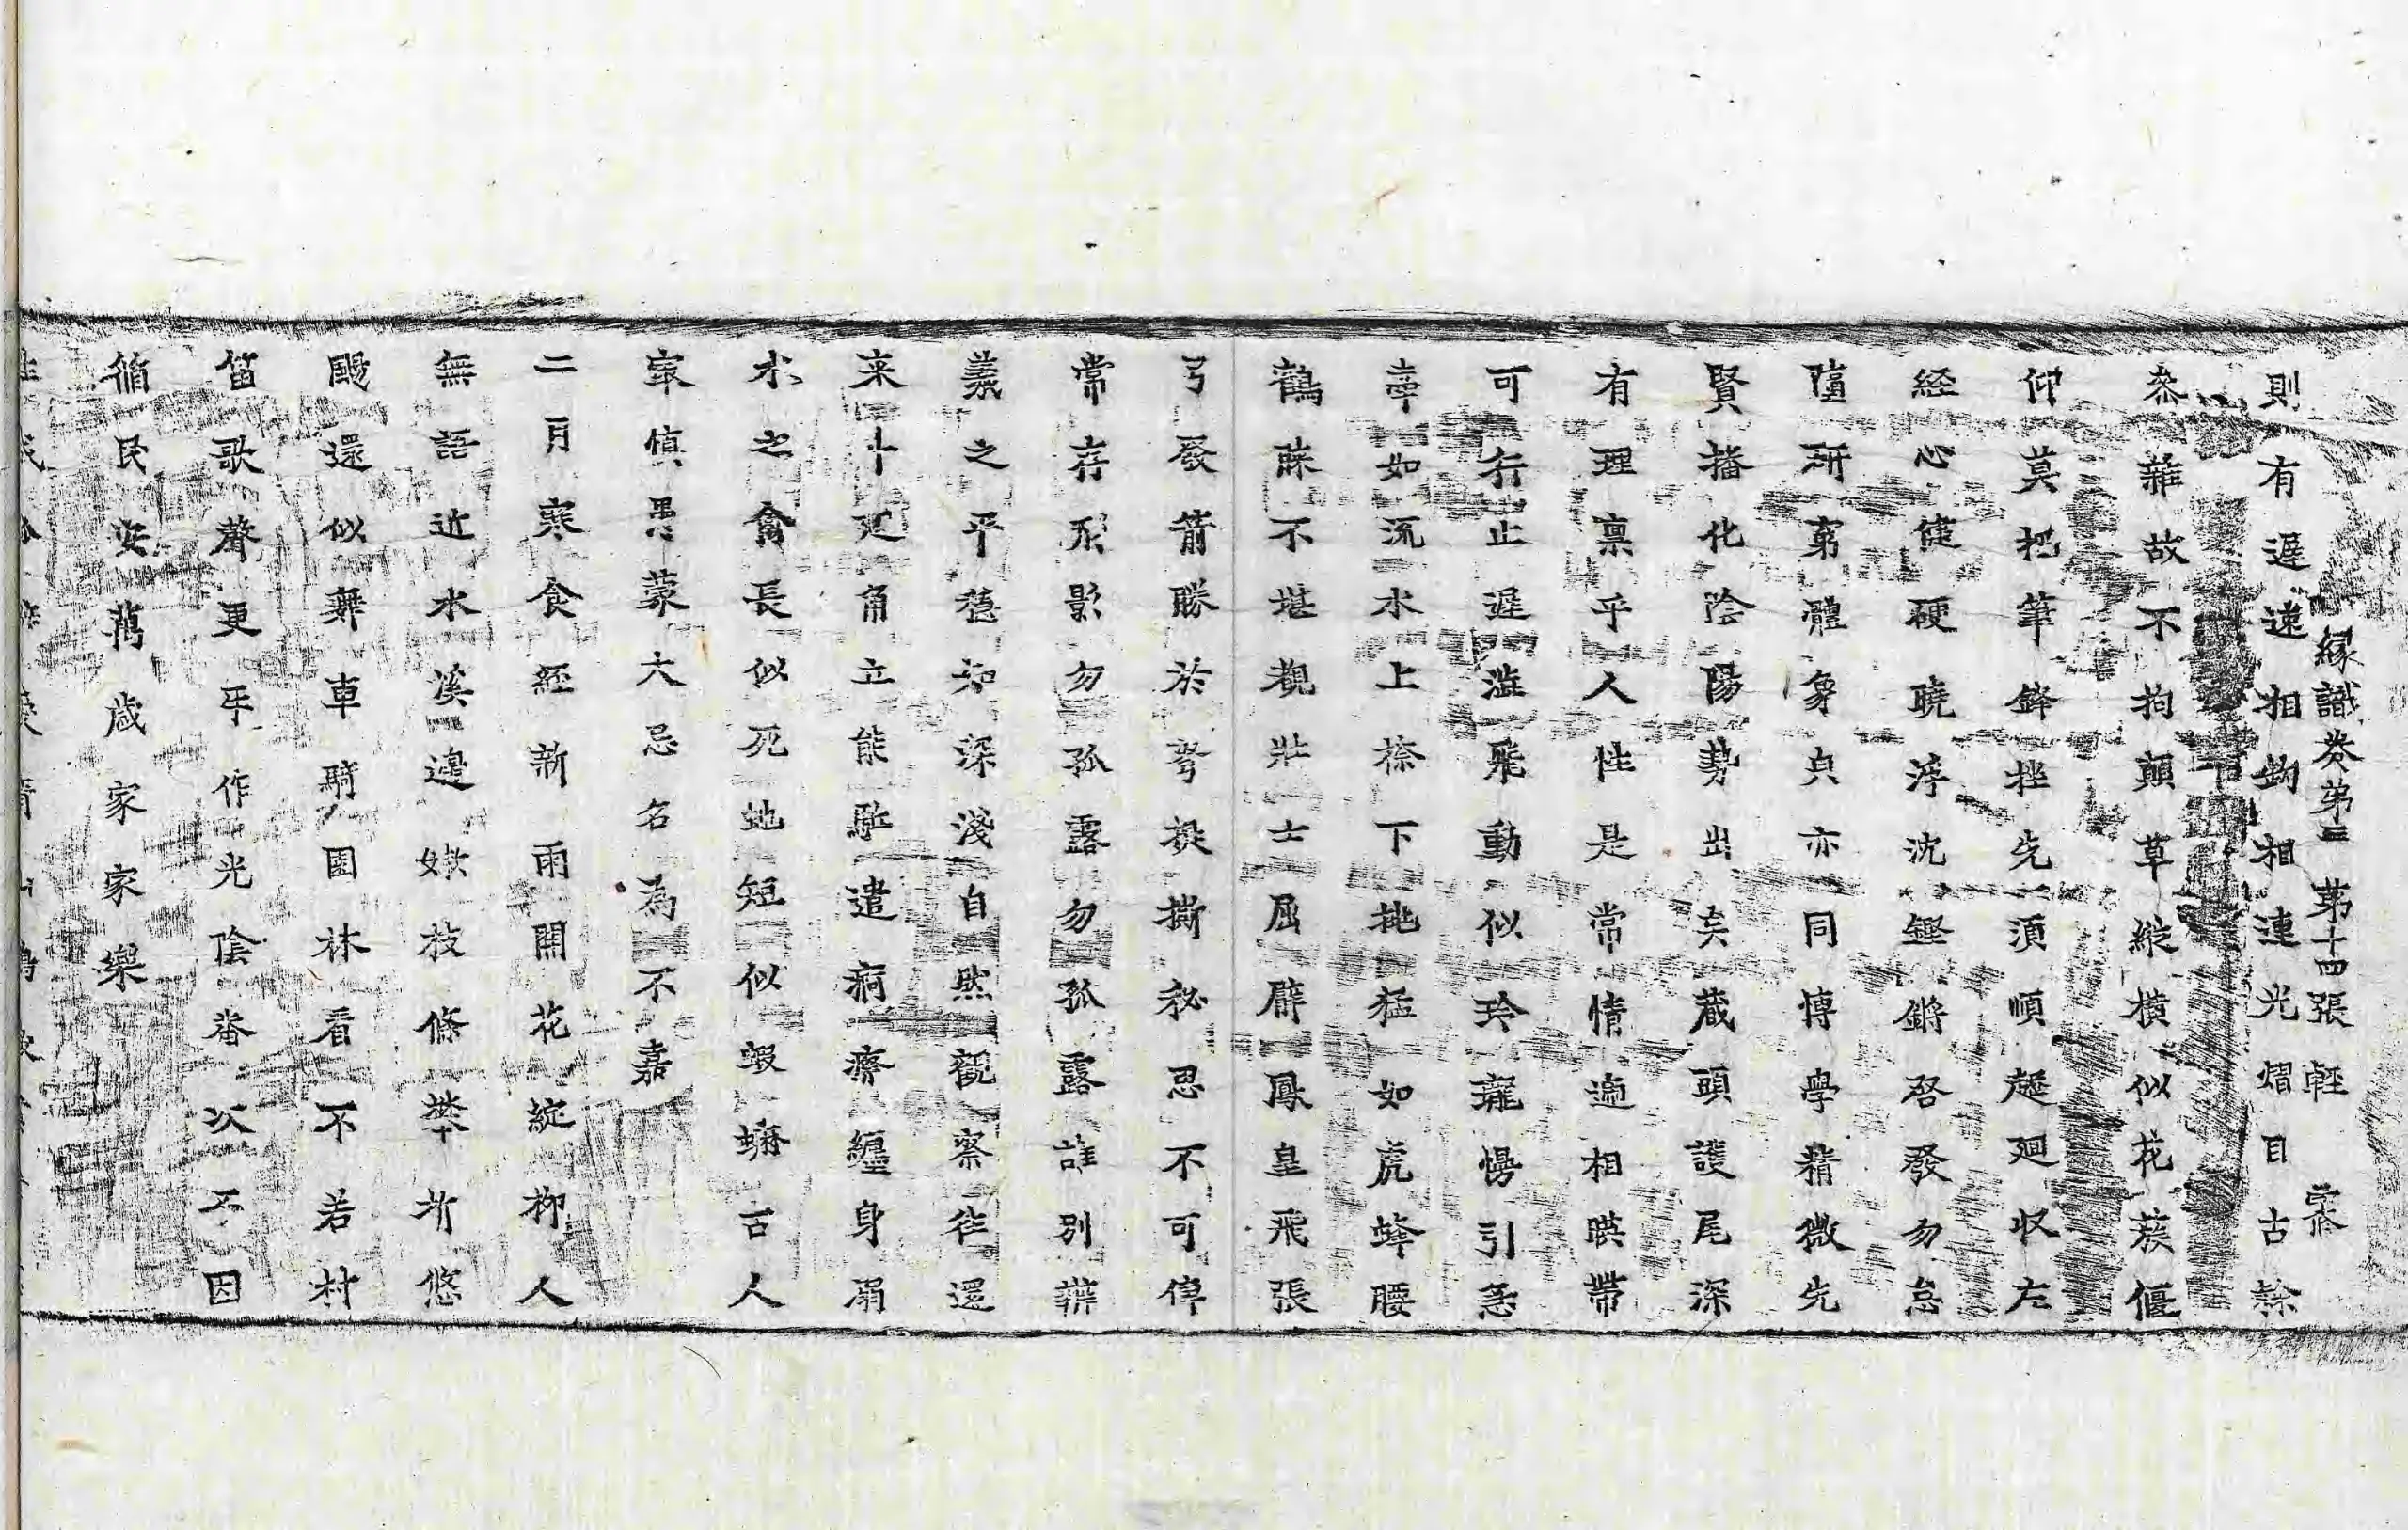 縁識卷第三 第十四張 輕
則有遲速相鉤相連光熠目古
叅雜故不拘顛草縱橫似花蔟偃
仰莫把筆鋒挫先湏順趂廻収左
経心使硬曉浮沈鏗鏘啓發勿怠
墮研窮體象貞亦同博學精微先
賢播化陰陽勢出矣藏頭護尾深
有理稟乎人性是常情適相暎帶
可行止遲澁飛動似玲瓏慢引急
牽如流水上捺下挑猛如虎蜂腰
鶴膝不堪觀壯士屈臂鳳皇飛張
弓發箭勝於弩投撕秘思不可停
常存形影勿孤露勿孤露誰別辨
羲之平穩知深淺自然觀察往還
来斗延角立能駈遣痾瘵纏身痛
水之禽長似死虵短似蝦蟆古人
㝡慎愚蒙大忌名為不嘉
二月寒食經新雨開花綻柳人
無語近水溪邊嫰枝條攀折悠
颺還似舞車騎園林看不若村
笛歌聲更平作光陰畨次不因
循民安萬歳家家樂